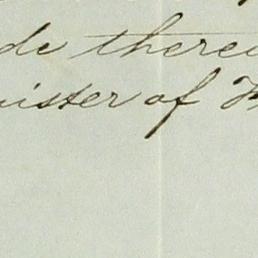 de there
nister of